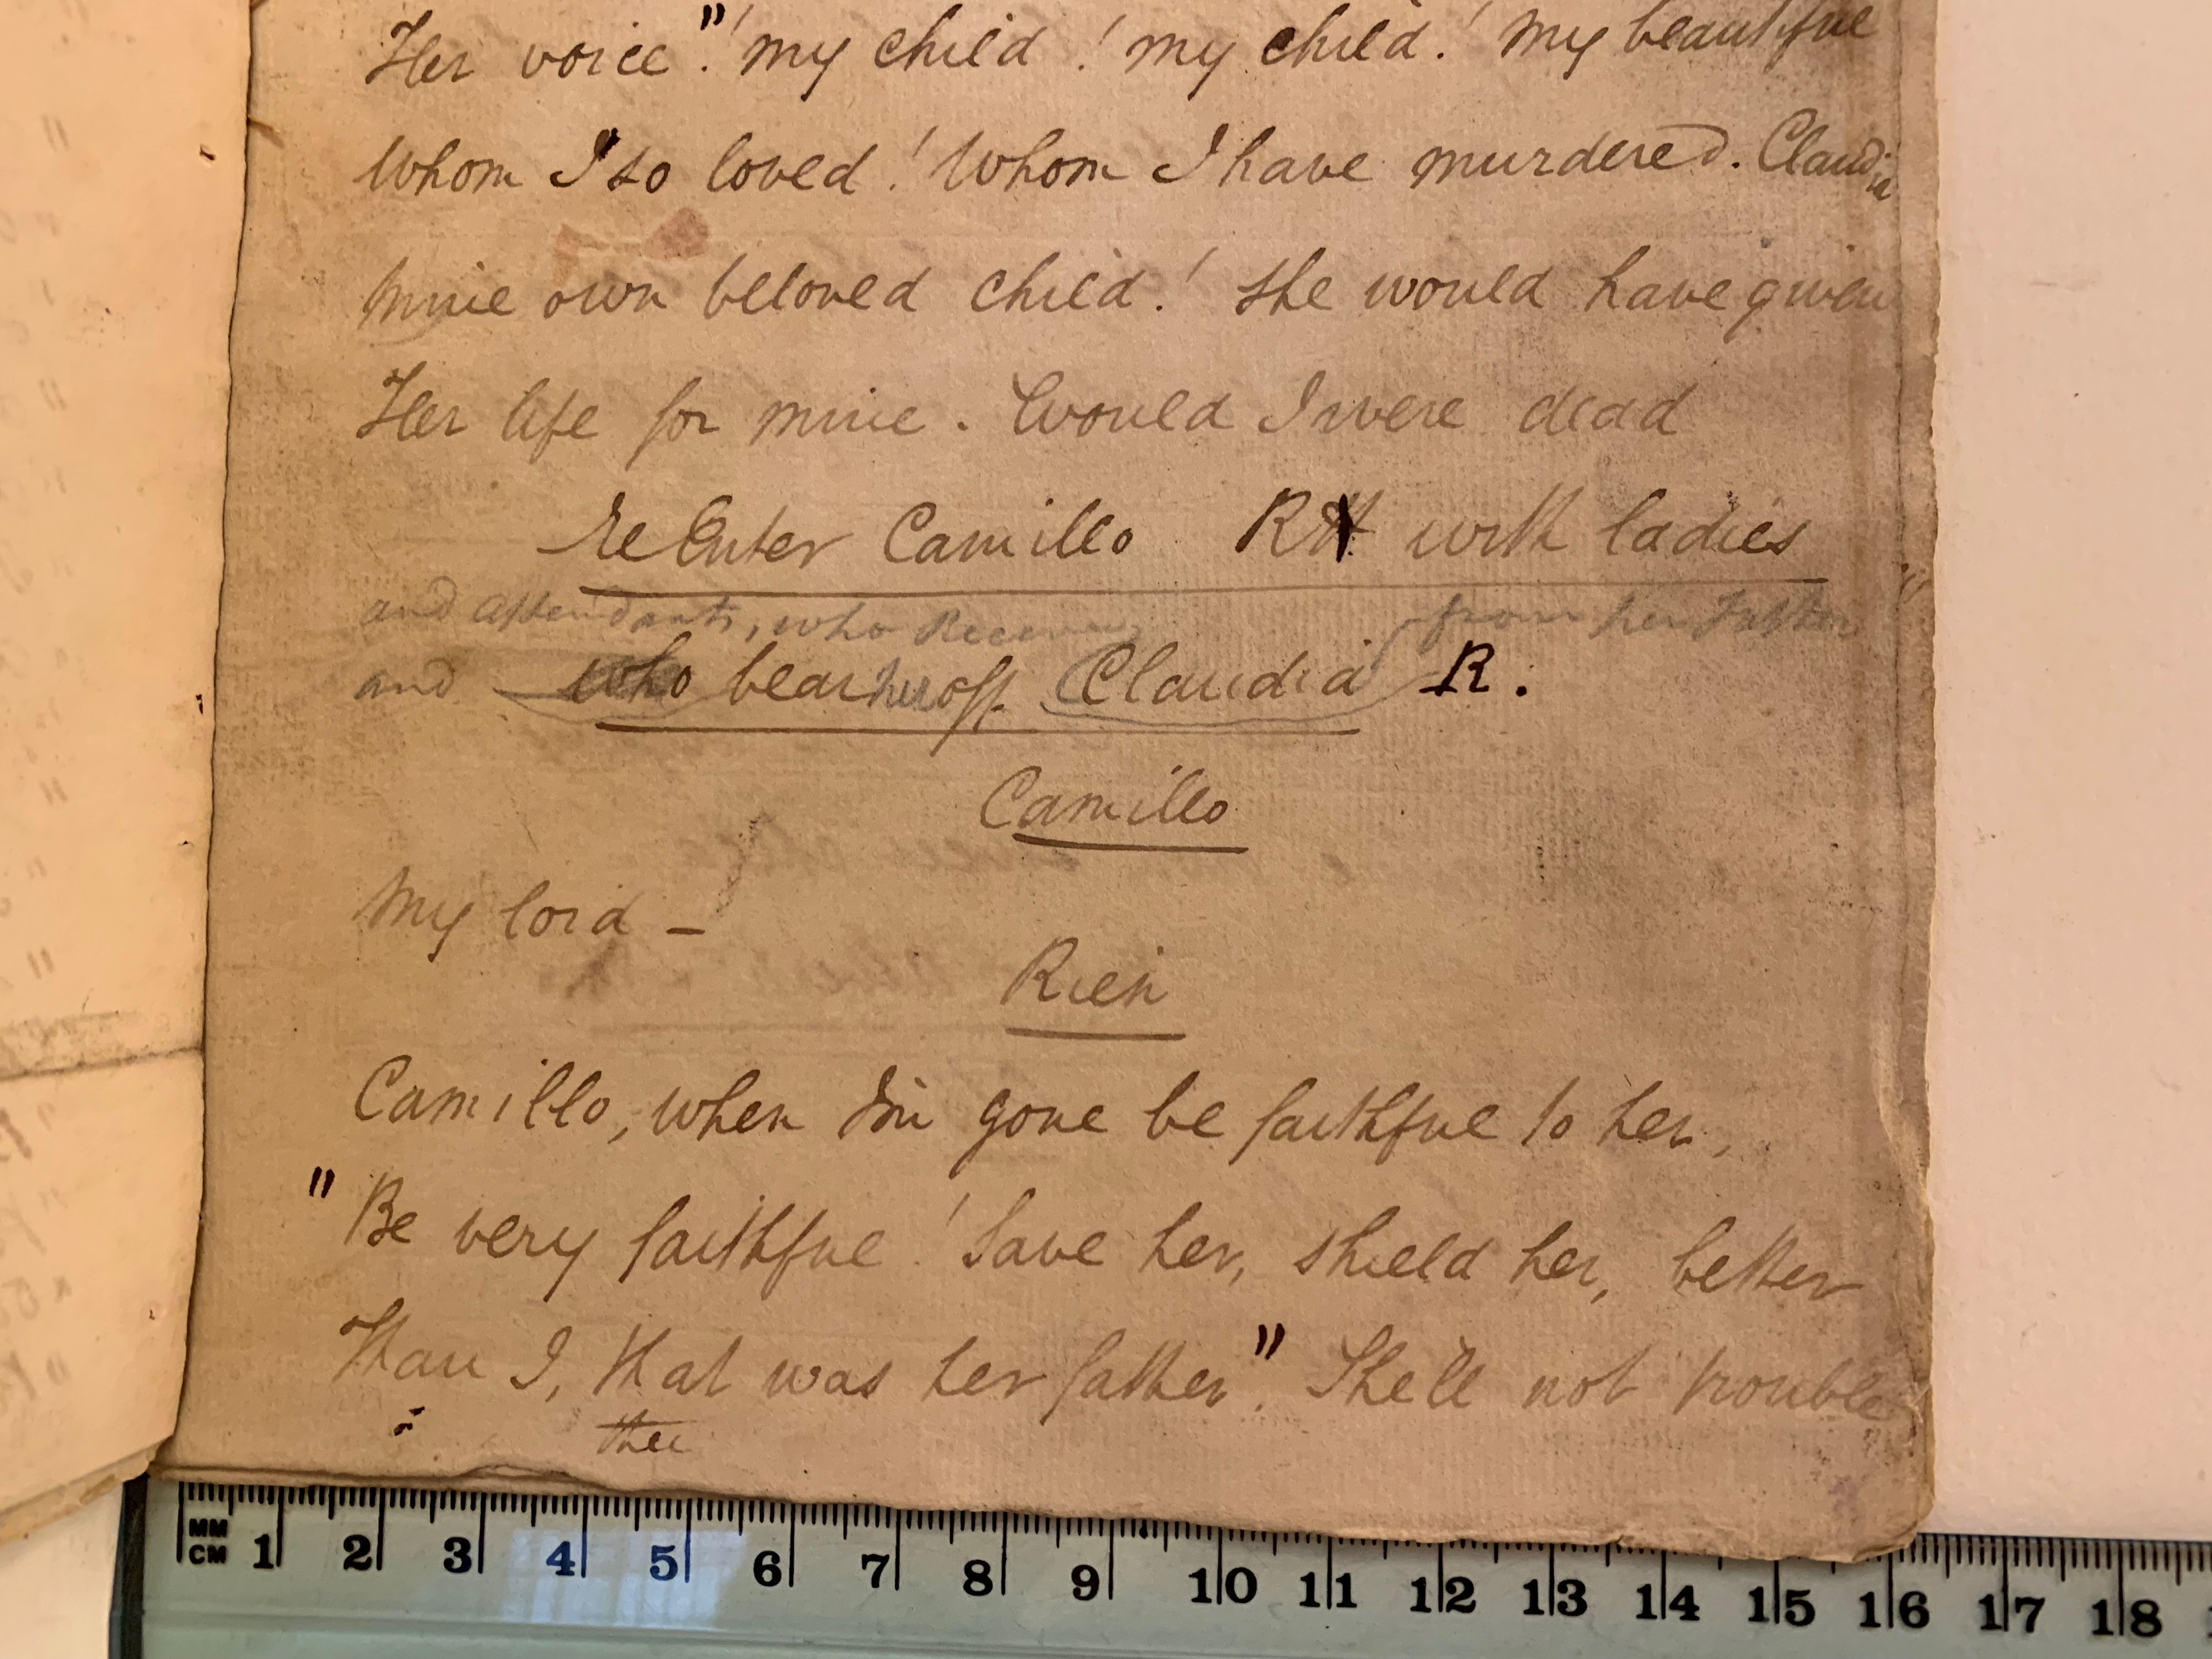 Her voice"! my child! my child! my beautiful
Whom I so loved! Whom I have murdered. Claudia
mine own beloved child! She would have given
Her life for mine. Would I were dead
ReEnter Camillo R with ladies
and attendants, who Receive from her Father
and who bear her off Claudia R.
Camillo
My lord –
Rien
Camillo, when I'm gone be faithful to her,
"Be very faithful! Save her, shield her, better
Than I, that was her father". She'll not trouble
thee
MM
CM 1 2 3 4 5 6 7 8 9 10 11 12 13 14 15 16 17 18